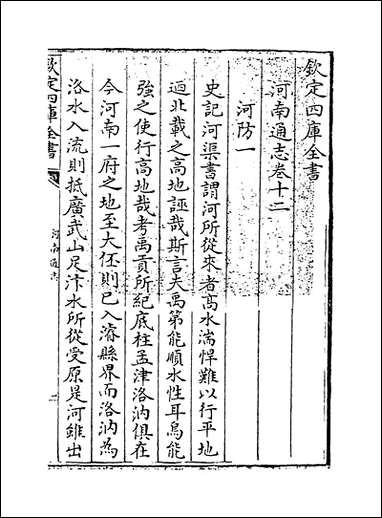 欽定四庫全書
河南通志卷十二
河防一
史記河渠書謂河所從來者高水湍悍難以行平地
迺北載之高地誣哉斯言夫禹第能順水性耳烏能
強之使行高地哉考禹貢所紀底柱孟津洛汭俱在
今河南一府之地至大伾則已入濬縣界而洛汭為
洛水入流則抵廣武山足汴水所從受原是河雖出
欽定四庫全書
河南通志
一